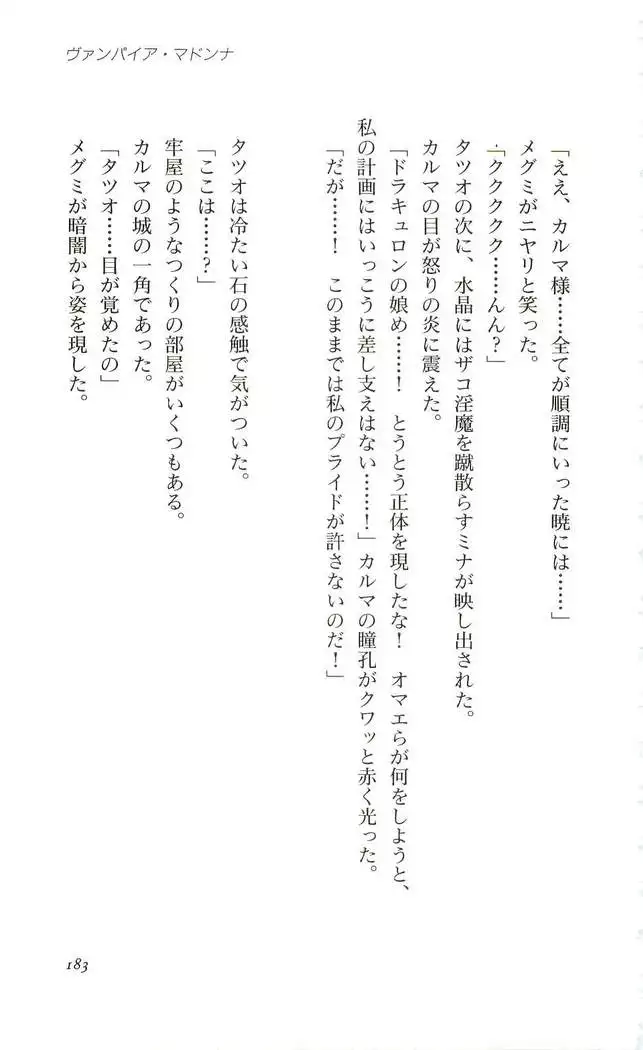 ヴァンパイア・マドンナ
「ええ、カルマ様……全てが順調にいった暁には……」
メグミがニヤリと笑った。
「ククククク……んん？」
タツオの次に、水晶にはザコ淫魔を蹴散らすミナが映し出された。
カルマの目が怒りの炎に震えた。
「ドラキュロンの娘め……！　とうとう正体を現したな！　オマエらが何をしようと、
私の計画にはいっこうに差し支えはない……！」カルマの瞳孔がクワッと赤く光った。
「だが……！　このままでは私のプライドが許さないのだ！」
タツオは冷たい石の感触で気がついた。
「ここは……？」
牢屋のようなつくりの部屋がいくつもある。
カルマの城の一角であった。
「タツオ……目が覚めたの」
メグミが暗闇から姿を現した。
183